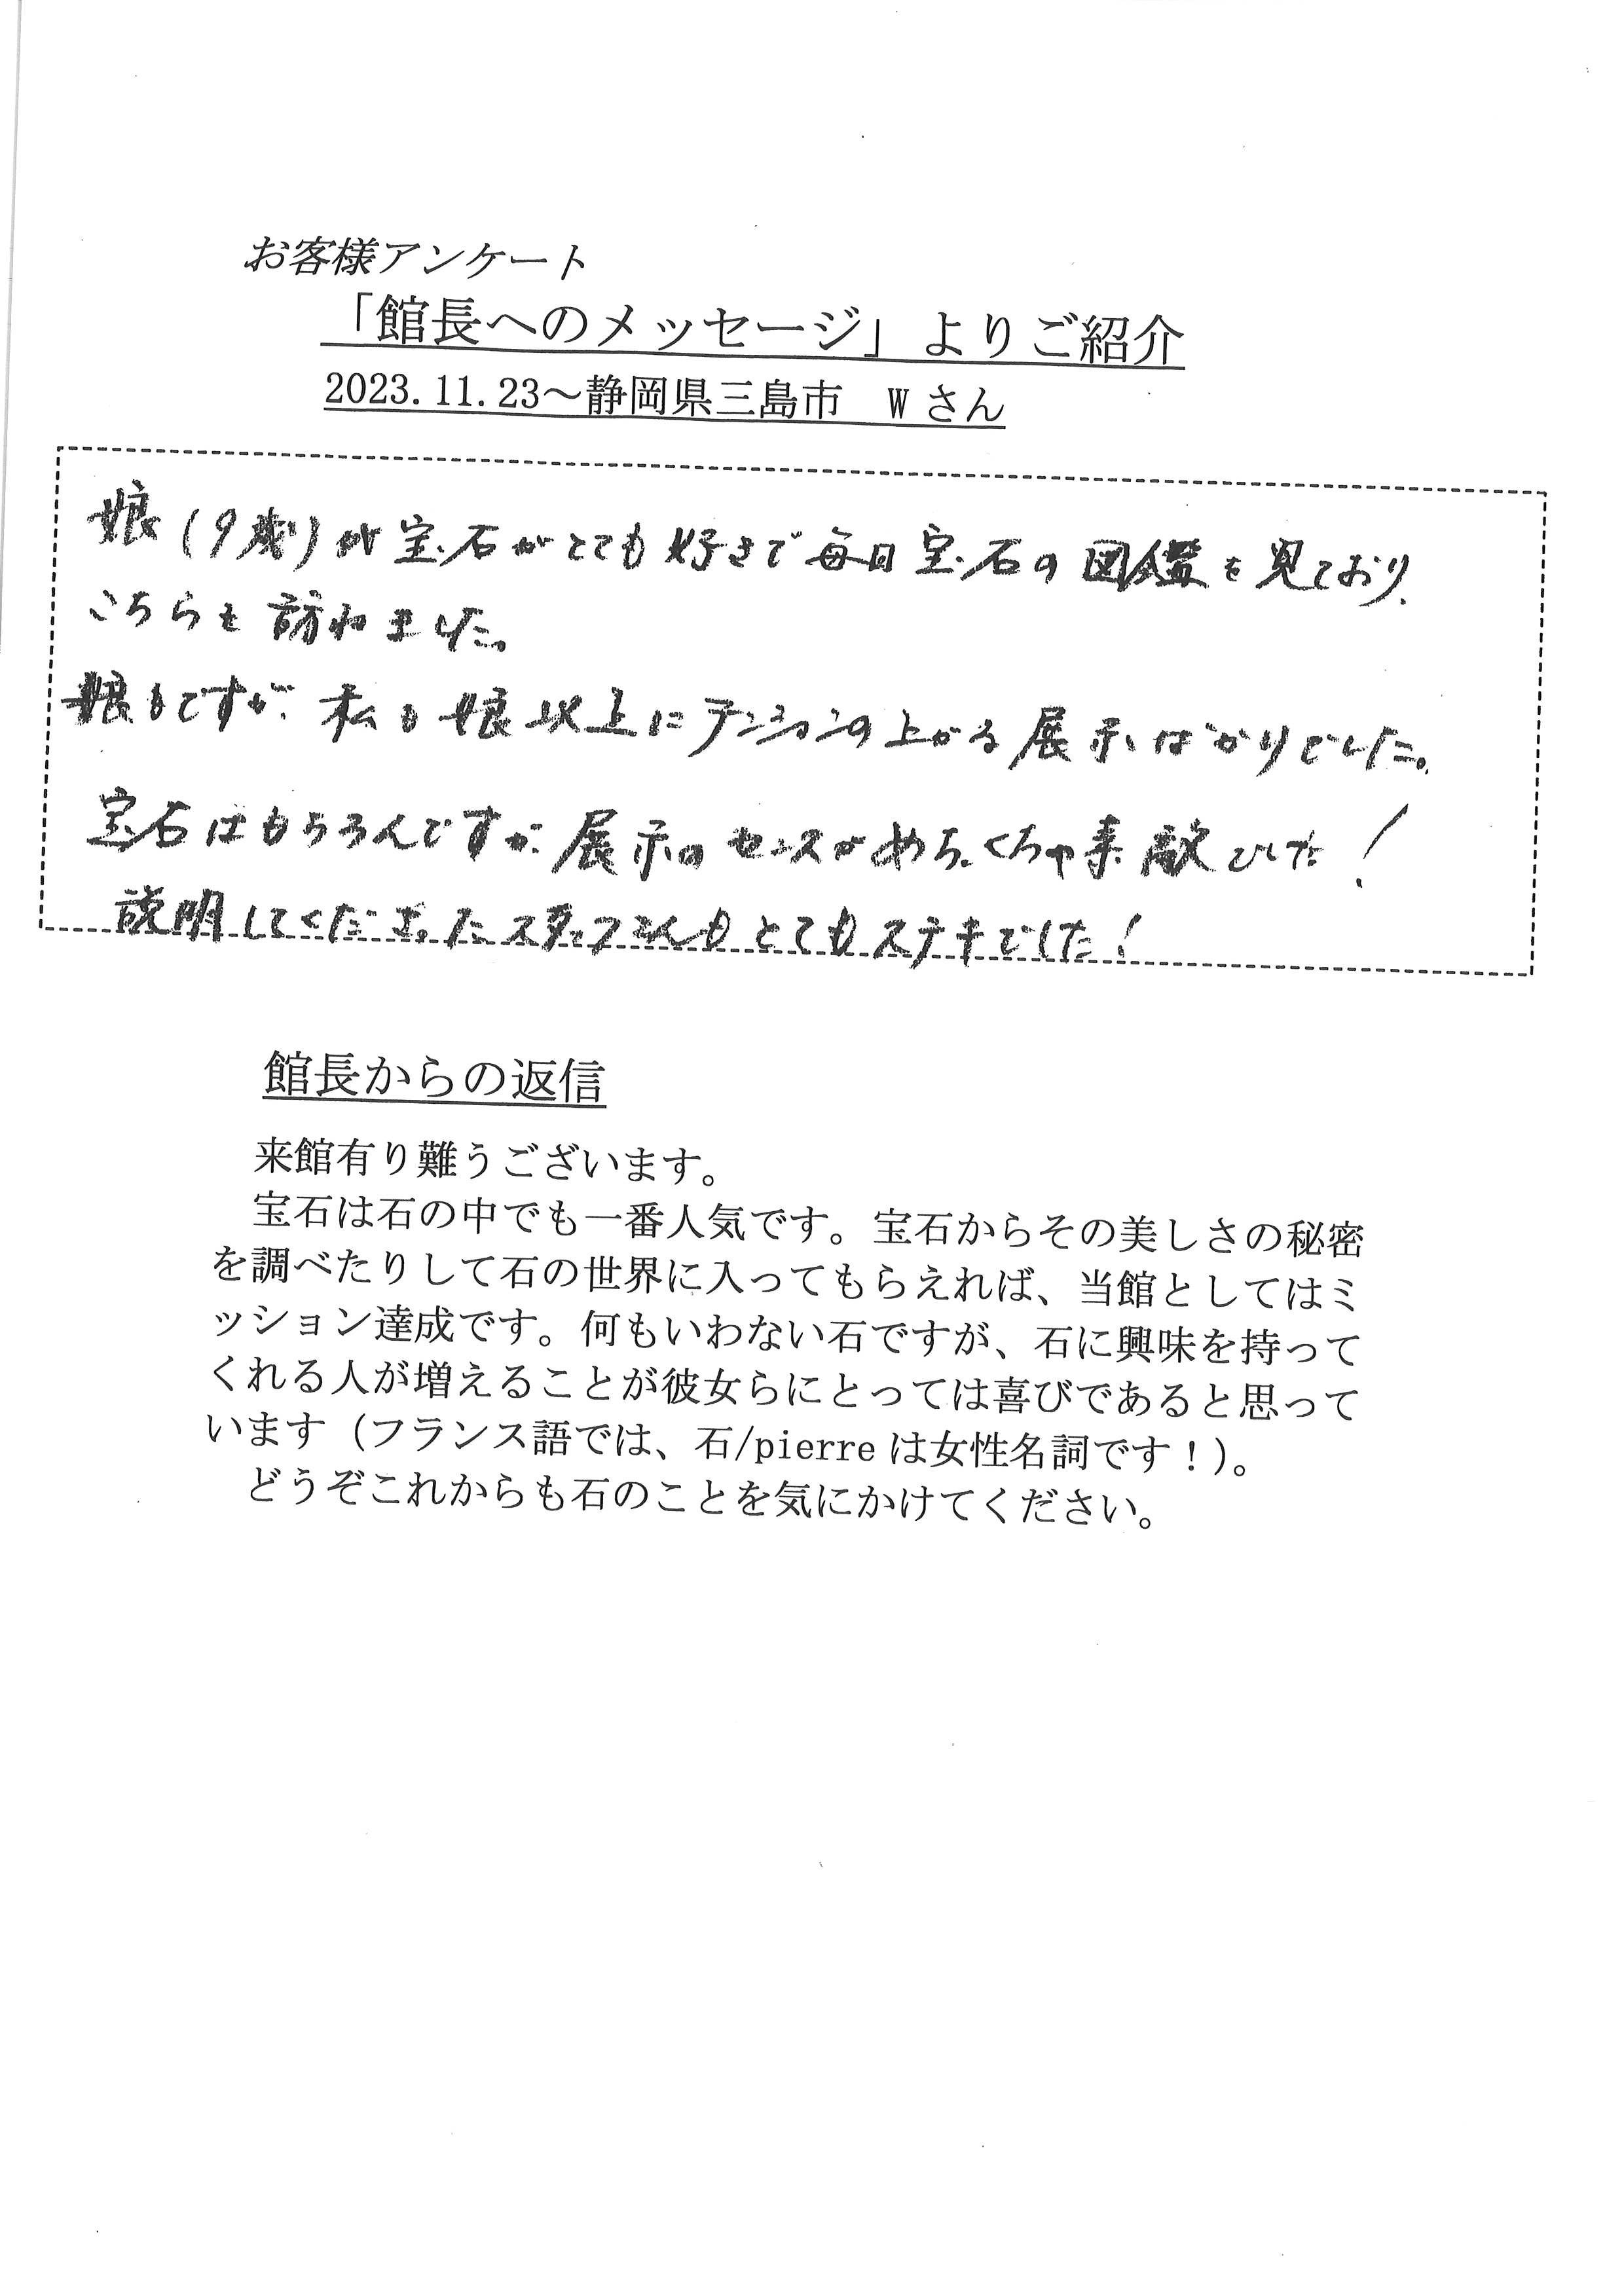 お客様アンケート
「館長へのメッセージ」よりご紹介
2023.11.23～静岡県三島市　Wさん
娘(9歳)が宝石がとても好きで毎日宝石の図鑑を見ており、
こちらを訪ねました。
娘もですが、私も娘以上にテンションの上がる展示ばかりでした。
宝石はもちろんですが、展示のセンスがめちゃくちゃ素敵でした！
説明してくださったスタッフさんもとてもステキでした！
館長からの返信
来館有り難うございます。
宝石は石の中でも一番人気です。宝石からその美しさの秘密
を調べたりして石の世界に入ってもらえれば、当館としてはミ
ッション達成です。何もいわない石ですが、石に興味を持って
くれる人が増えることが彼女らにとっては喜びであると思って
います（フランス語では、石/pierreは女性名詞です！）。
どうぞこれからも石のことを気にかけてください。